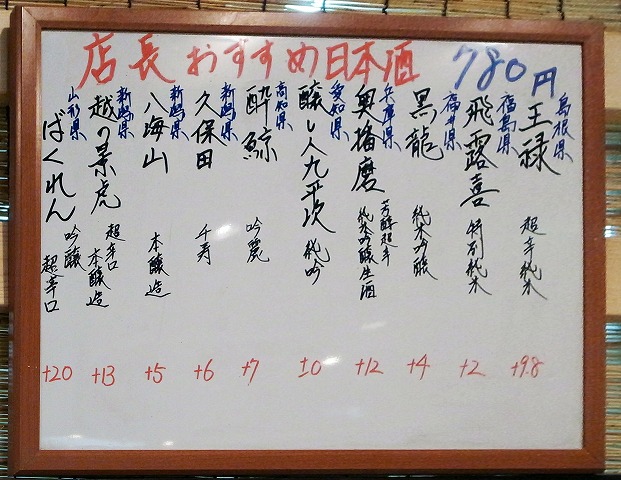 店長おすすめ日本酒 780円
島根県
王禄 超辛純米 +9.8
福島県
飛露喜 特別純米 +2
福井県
黒龍 純米吟醸 +4
兵庫県
奥播磨 芳醇超辛 純米吟醸生酒 +12
愛知県
醸し人九平次 純吟 ±0
高知県
酔鯨 吟麗 +7
新潟県
久保田 千寿 +6
新潟県
八海山 本醸造 +5
新潟県
越の景虎 超辛口 本醸造 +13
山形県
ばくれん 吟醸 超辛口 +20